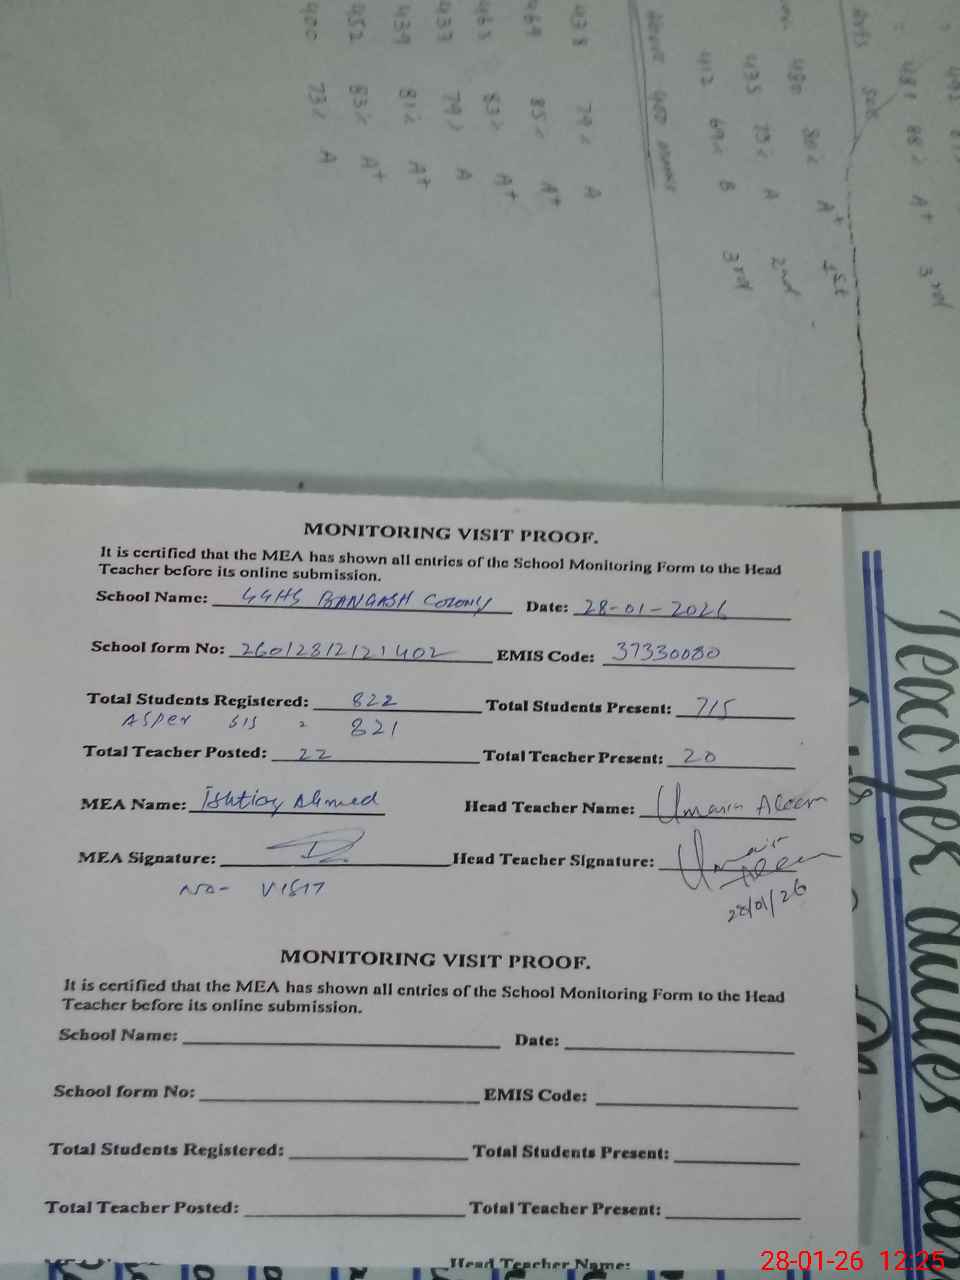 400 73% A
452 83% A+
439 81% A+
433 79% A
463 83% A+
469 85% A+
438 79% A
Above 400 marks
412 69% B 3rd
435 73% A 2nd
480 80% A+ 1st
Arts
481 88% A+ 3rd
MONITORING VISIT PROOF.
It is certified that the MEA has shown all entries of the School Monitoring Form to the Head
Teacher before its online submission.
School Name: GGHS BANGASH COLONY Date: 28-01-2026
School form No: 26012812121402 EMIS Code: 37330080
Total Students Registered: 822 Total Students Present: 715
ASPER SIS = 821
Total Teacher Posted: 22 Total Teacher Present: 20
MEA Name: Ishtiaq Ahmed Head Teacher Name: Umaira Aleem
MEA Signature: Head Teacher Signature: Umair Aleem
NO- VISIT 28/01/26
MONITORING VISIT PROOF.
It is certified that the MEA has shown all entries of the School Monitoring Form to the Head
Teacher before its online submission.
School Name: Date:
School form No: EMIS Code:
Total Students Registered: Total Students Present:
Total Teacher Posted: Total Teacher Present:
Head Teacher Name:
Teacher duties
28-01-26 12:25